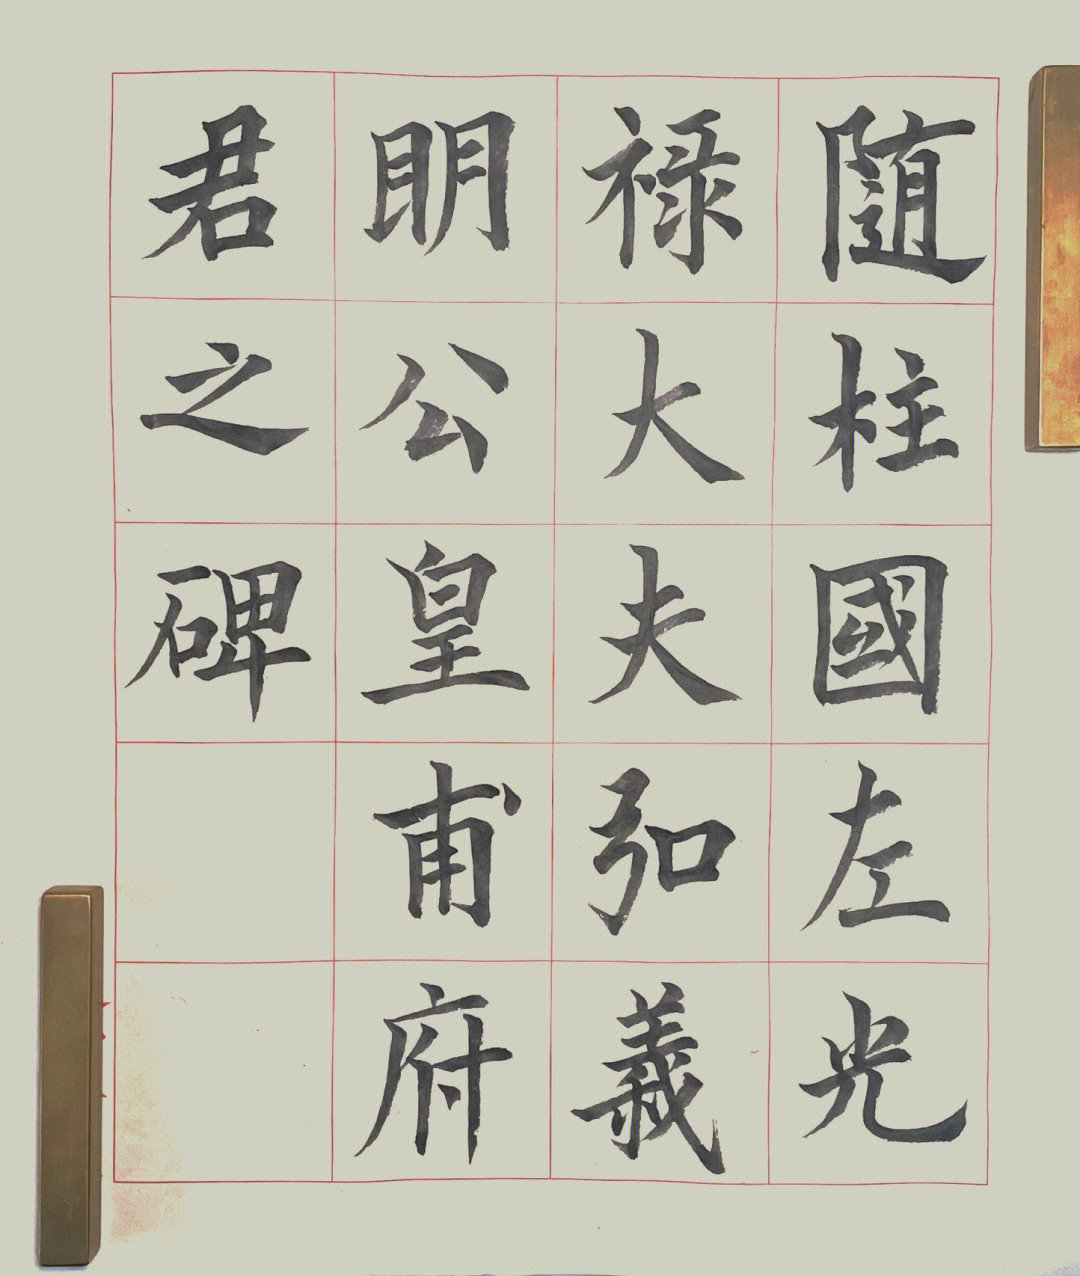 随柱國左光
禄大夫弘義
明公皇甫府
君之碑